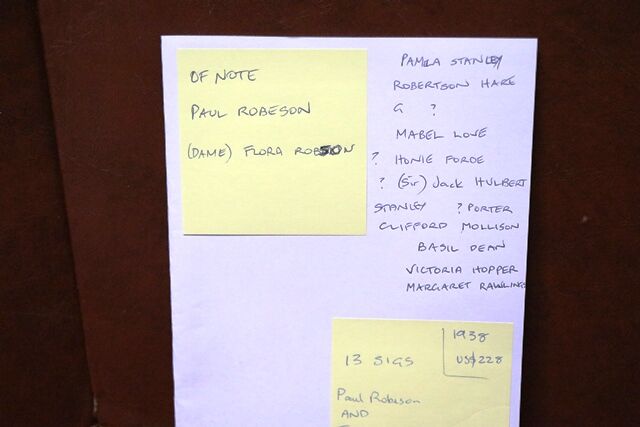 OF NOTE
PAUL ROBESON
(DAME) FLORA ROBSON
PAMELA STANLEY
ROBERTSON HARE
G ?
MABEL LOVE
? HONIE FORDE
? (Sir) Jack HULBERT
STANLEY ? PORTER
CLIFFORD MOLLISON
BASIL DEAN
VICTORIA HOPPER
MARGARET RAWLINGS
13 SIGS
1938
US$228
Paul Robeson
AND